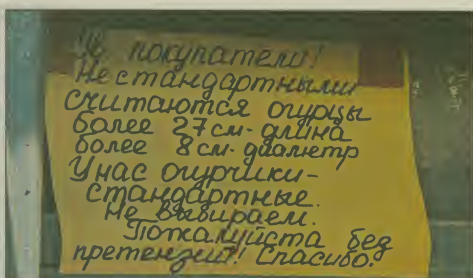 Ув. покупатели!
Нестандартными
считаются огурцы
более 27 см - длина
более 8 см - диаметр
У нас огурчики -
стандартные.
Не выбираем.
Пожалуйста без
претензий! Спасибо!